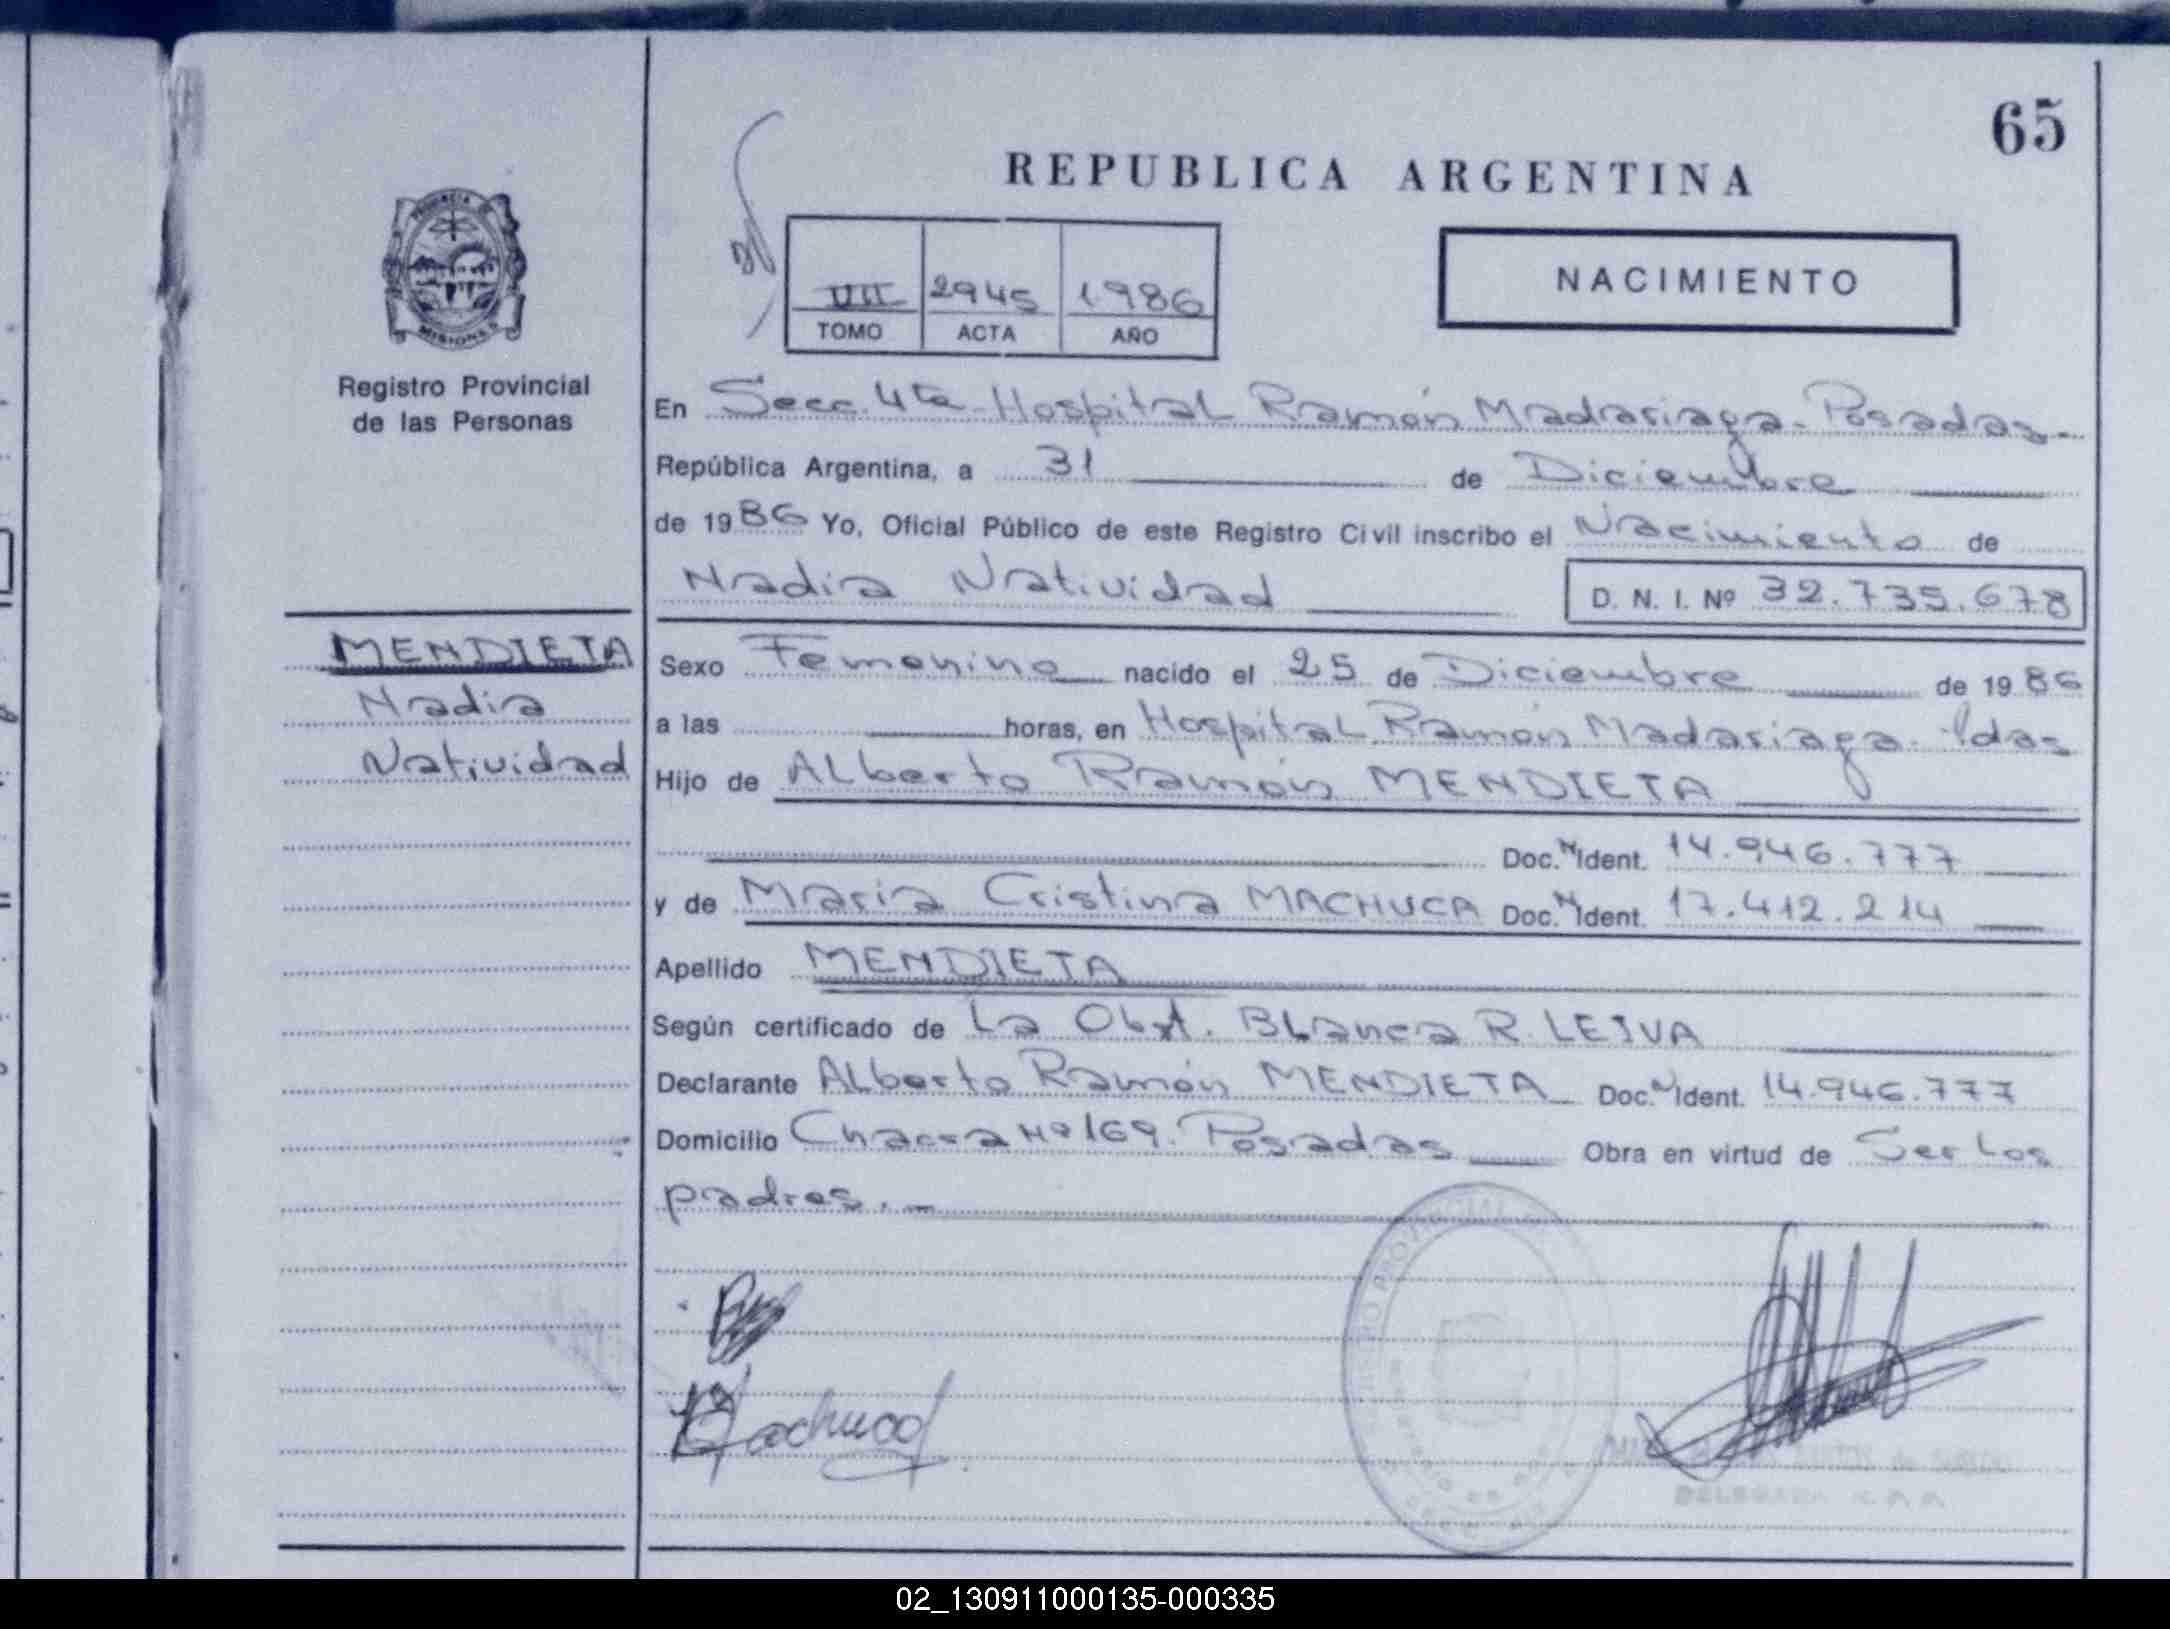 65
REPUBLICA ARGENTINA
PROVINCIA DE
MISIONES
Registro Provincial
de las Personas
VIII 2945 1986
TOMO ACTA AÑO
NACIMIENTO
En Secc. 4ta - Hospital Ramón Madariaga - Posadas -
República Argentina, a 31 de Diciembre
de 1986 Yo, Oficial Público de este Registro Civil inscribo el Nacimiento de
Nadia Natividad D. N. I. Nº 32.735.678
MENDIETA
Nadia
Natividad
Sexo Femenino nacido el 25 de Diciembre de 1986
a las horas, en Hospital Ramón Madariaga - Pdas
Hijo de Alberto Ramón MENDIETA
Doc. N Ident. 14.946.777
y de Maria Cristina MACHUCA Doc. N Ident. 17.412.214
Apellido MENDIETA
Según certificado de La Obst. Blanca R. LEIVA
Declarante Alberto Ramón MENDIETA Doc. N Ident. 14.946.777
Domicilio Chacra Nº 169. Posadas Obra en virtud de Ser los
padres. -
REGISTRO PROVINCIAL
Machuca
DELEGADA
02_130911000135-000335